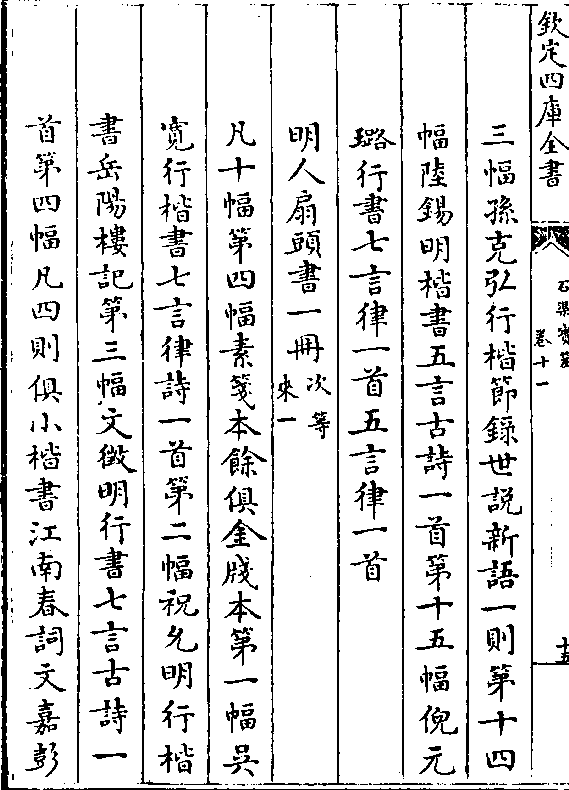 欽定四庫全書
石渠寶笈
卷十一
十五
三幅孫克弘行楷節録世説新語一則第十四
幅陸錫明楷書五言古詩一首第十五幅倪元
璐行書七言律一首五言律一首
明人扇頭書一冊次等
來一
凡十幅第四幅素箋本餘俱金牋本第一幅吳
寛行楷書七言律詩一首第二幅祝允明行楷
書岳陽樓記第三幅文徴明行書七言古詩一
首第四幅凡四則俱小楷書江南春詞文嘉彭